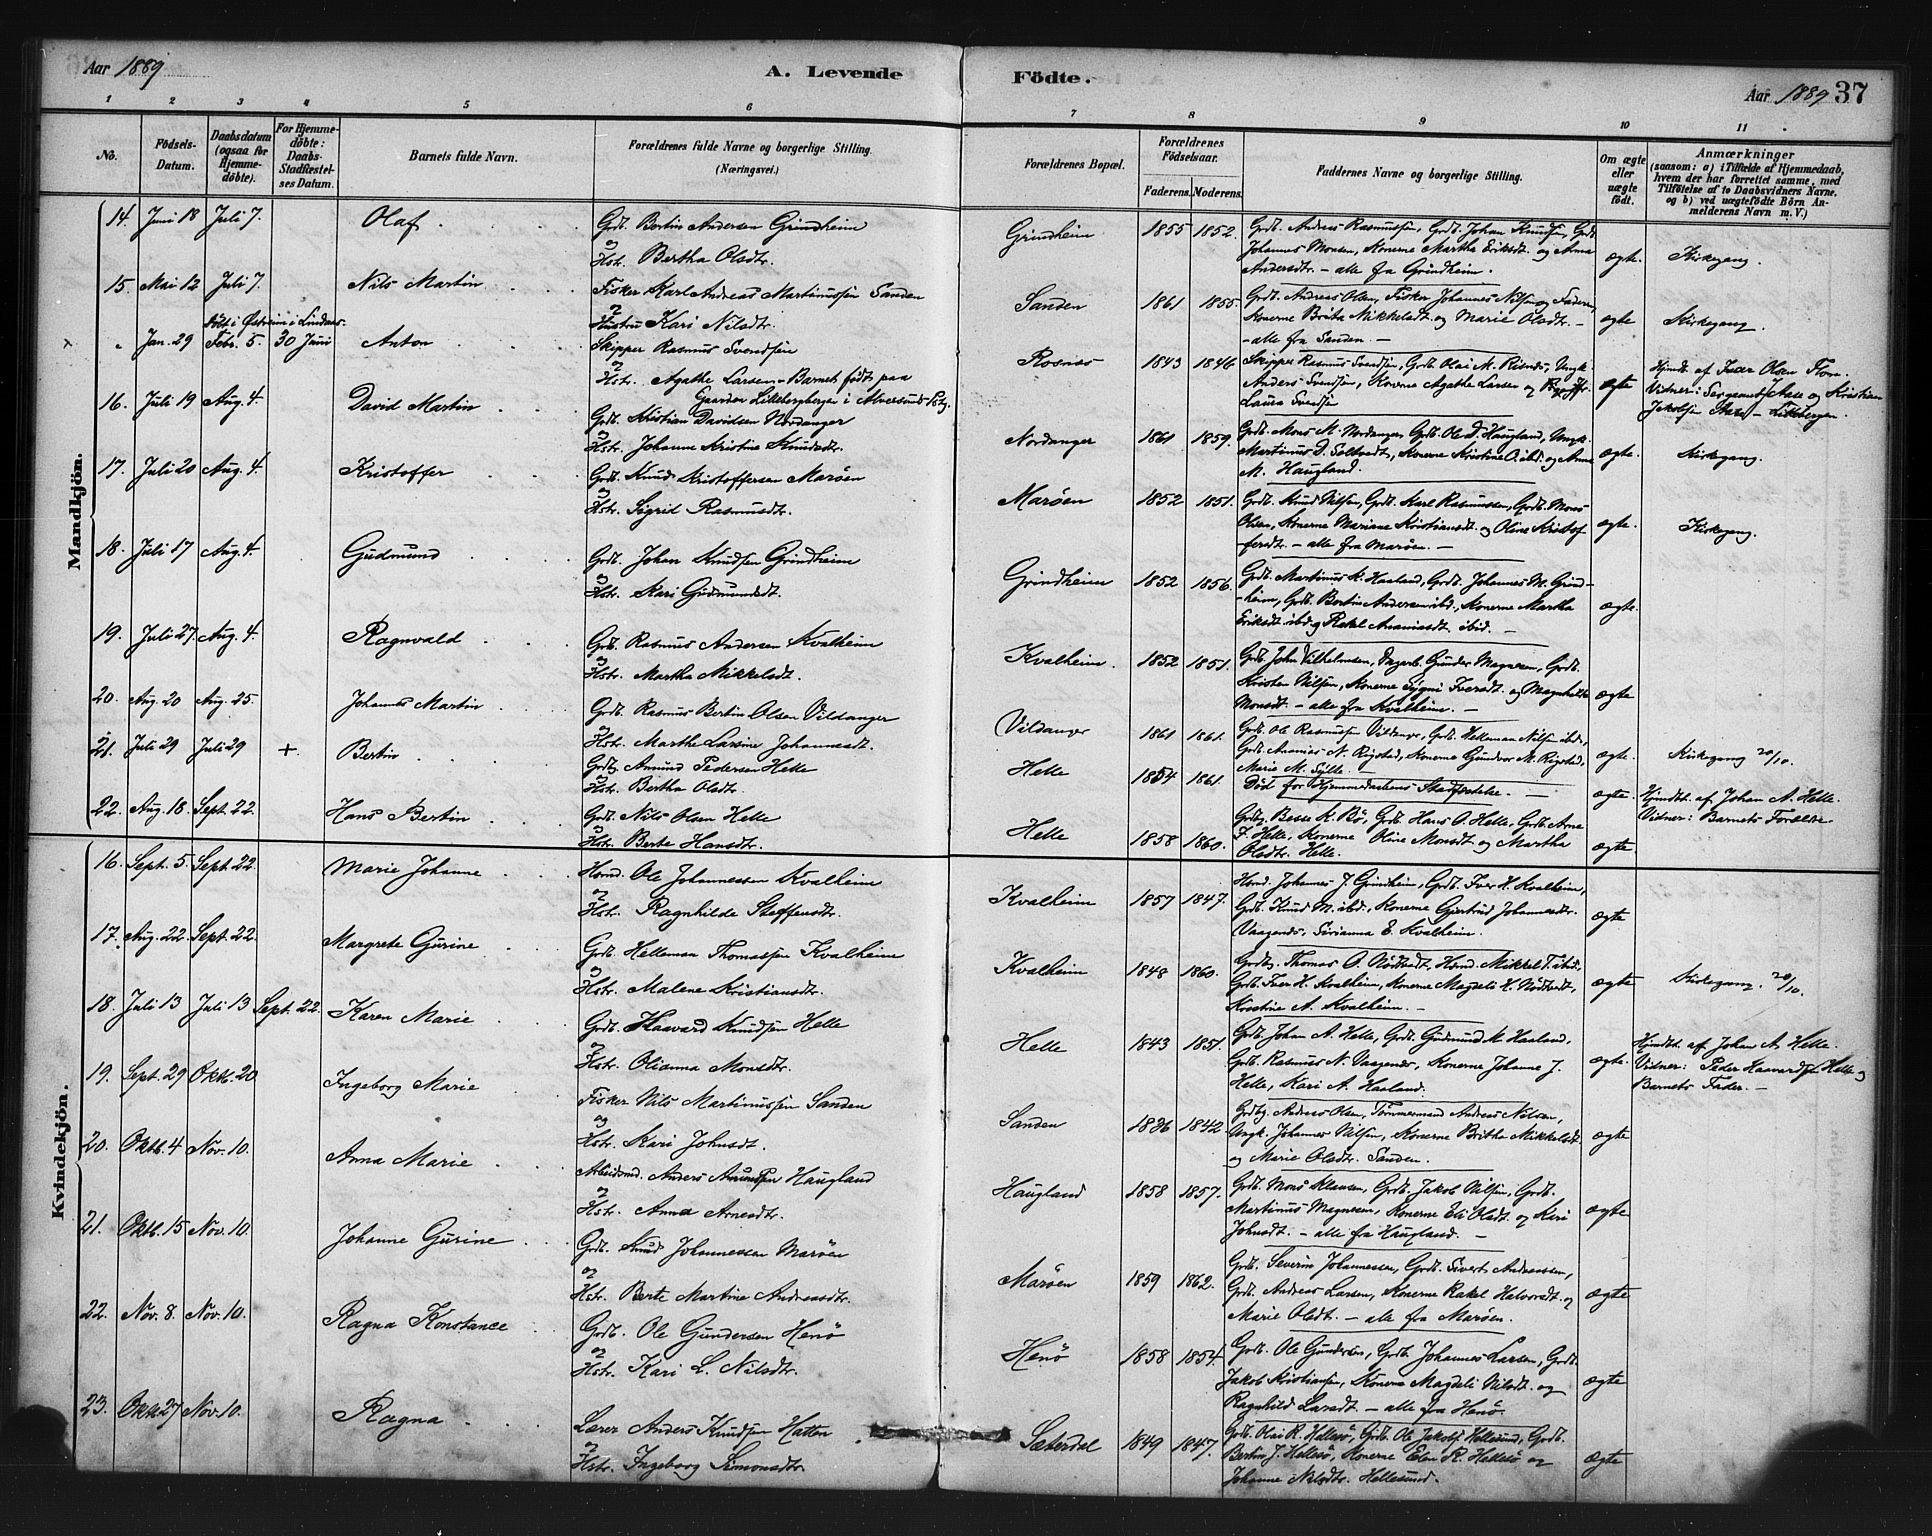 Aar 1889
A. Levende
Födte.
Aar 1889 37
1 2 3 4 5 6 7 8 9 10 11
No.
Födsels-Datum.
Daabsdatum (ogsaa for Hjemme-döbte).
For Hjemme-döbte: Daabs-Stadfæstel-ses Datum.
Barnets fulde Navn.
Forældrenes fulde Navne og borgerlige Stilling. (Næringsvei.)
Forældrenes Bopæl.
Forældrenes Födselsaar.
Faderens. Moderens.
Faddernes Navne og borgerlige Stilling.
Om ægte eller uægte födt.
Anmærkninger
(saasom: a) i Tilfælde af Hjemmedaab,
hvem der har forrettet samme, med
Tilföielse af to Daabsvidners Navne,
og b) ved uægtefödte Börn An-
melderens Navn m. V.)
Mandkjön.
14. Juni 18 Juli 7. Olaf
Grdb. Bertin Andersen Grindheim
og
Hstr. Bertha Olsdtr.
Grindheim 1855 1852.
Grdb. Andreas Rasmussen, Grdb. Johan Knudsen, Grdb.
Johannes Monsen, Konerne Martha Eriksdt. og Anna
Andersdtr. – alle fra Grindheim.
ægte. Kirkegang.
15. Mai 12 Juli 7. Nils Martin
Fisker Karl Andreas Martinussen Sanden
og
Hustru Kari Nilsdtr.
Sanden 1861 1855.
Grdb. Andreas Olsen, Fisker Johannes Nilsen og Faderen,
Konerne Brita Mikkelsdt. og Marie Olsdtr. –
– alle fra Sanden. –
ægte Kirkegang.
Födt i Østreim i Lindaas.
" Jan. 29 Febr. 5. 30 Juni Anton
Skipper Rasmus Svendsen
og
Hstr. Agathe Larsen – Barnet födt paa
Gaarden Lillebergen i Alversund Pstg.
Rosnes 1843 1846
Skipper Rasmus Svendsen, Grdb. Olai M. Risnes, Ungk.
Anders Svendsen, Konerne Agathe Larsen og
Laura Svendsen
ægte
Hjmdt. af Iver Olsen Flom.
Vidner: Sergeant Aase og Kristian
Jakobsen – Lillebergen.
16. Juli 19 Aug. 4. David Martin
Grdb. Kristian Davidsen Nordanger
og
Hstr. Johanne Kristine Knudsdtr.
Nordanger 1861 1859.
Grdb. Mons M. Nordanger, Grdb. Ole D. Haugland, Ungk.
Martinus D. Soltvedt, Konerne Kristine O. ibd. og Anna
M. Haugland.
ægte. Kirkegang.
17. Juli 20 Aug. 4. Kristoffer
Grdb. Knud Kristoffersen Marøen
og
Hstr. Sigrid Rasmusdtr.
Marøen 1852 1851.
Grdb. Knud Nilsen, Grdb. Karl Rasmussen, Grdb. Mons
Olsen, Konerne Mariane Kristiansdt. og Oline Kristof-
fersdt. – alle fra Marøen. –
ægte. Kirkegang.
18. Juli 17 Aug. 4. Gudmund
Grdb. Johan Knudsen Grindheim
og
Hstr. Kari Gudmundsdt.
Grindheim 1852 1856.
Grdb. Martinus K. Haaland, Grdb. Johannes M. Grind-
heim, Grdb. Bertin Andersen ibd., Konerne Martha
Eriksdt. ibd. og Rakel Ananiasdt. ibid. –
ægte.
19. Juli 27. Aug. 4. Ragnvald
Grdb. Rasmus Andersen Kvalheim
og
Hstr. Martha Mikkelsdt.
Kvalheim. 1852 1851.
Grdb. John Vilhelmsen, Gunder Magnesen, Grdb.
Kristen Nilsen, Konerne Sygni Iversdt. og Magnhilde
Monsdt. – alle fra Kvalheim. –
ægte
20. Aug. 20 Aug. 25. Johannes Martin
Grdb. Rasmus Bertin Olsen Vildanger
og
Hstr. Marthe Larsine Johannesdt.
Vildanger 1861 1861.
Grdb. Ole Rasmussen Vildanger, Grdb. Helleman Nilsen ibid.,
Grdb. Ananias N. Rigstad, Konerne Gundvor M. Rigstad,
Marie M. Sylte. –
ægte. Kirkegang 20/10.
21. Juli 29 Juli 29 + Bertin
Grdbr. Amund Pedersen Helle
og
Hstr. Bertha Olsdtr.
Helle 1854 1861.
Död för Hjemmedaabens Stadfæstelse. –
ægte.
Hjmdbt. af Johan A. Helle.
Vidner: Barnets Forældre
22. Aug. 18 Sept. 22. Hans Bertin
Grdb. Nils Olsen Helle
og
Hstr. Berte Hansdtr.
Helle 1858 1860.
Grdbg. Besse K. Bö, Grdb. Hans O. Helle, Grdb. Arne
J. Helle, Konerne Oline Monsdt. og Martha
Olsdtr. Helle.
ægte.
Kvindekjön.
16. Sept. 5. Sept. 22. Marie Johanne
Hsmd. Ole Johannessen Kvalheim
og
Hstr. Ragnhilde Steffensdtr.
Kvalheim 1857 1847.
Hsmd. Johannes J. Grindheim, Grdb. Iver H. Kvalheim,
Grdb. Knud M. ibd., Konerne Gjertrud Johannesdtr.
Vaagenes, Sirianna E. Kvalheim.
ægte
17. Aug. 22. Sept. 22. Margrete Gurine
Grdb. Helleman Thomassen Kvalheim
og
Hstr. Malene Kristiansdtr.
Kvalheim 1848 1860.
Grdbg. Thomas O. Nödtvedt, Hsmd. Mikkel T. ibid.,
Grdb. Iver H. Kvalheim, Konerne Magdeli H. Nödtvedt,
Kristine A. Kvalheim. –
ægte Kirkegang 20/10.
18. Juli 13 Juli 13 Sept. 22. Karen Marie
Grdb. Haavard Knudsen Helle
og
Hstr. Olianna Monsdtr.
Helle 1843 1851.
Grdb. Johan A. Helle, Grdb. Gudmund M. Haaland,
Grdb. Rasmus N. Vaagenes, Konerne Johanne J.
Helle, Kari A. Haaland.
ægte.
Hjmdbt. af Johan A. Helle.
Vidner: Peder Haavardsen Helle og
Barnets Fader. –
19. Sept. 29 Oktb. 20 Ingeborg Marie
Fisker Nils Martinussen Sanden
og
Hstr. Kari Johnsdt.
Sanden 1836 1842
Grdbg. Andreas Olsen, Tömmermand Andreas Nilsen,
Ungk. Johannes Nilsen, Konerne Britha Mikkelsdt.
og Marie Olsdtr. Sanden.
ægte
20. Oktb. 4 Nov. 10. Anna Marie
Arbeidsmd. Anders Amundsen Haugland
og
Hstr. Anna Arnesdtr.
Haugland 1858 1857.
Grdb. Mons Klausen, Grdb. Jakob Nilsen, Grdb.
Martinus Magnesen, Konerne Eli Olsdt. og Kari
Johnsdt. – alle fra Haugland. –
ægte
21. Oktb. 15 Nov. 10. Johanne Gurine
Grdb. Knud Johannessen Marøen
og
Hstr. Berte Martine Andreasdtr.
Marøen 1859 1862.
Grdb. Severin Johannessen, Grdb. Sivert Andreassen,
Grdb. Andreas Larsen, Konerne Rakel Halvorsdt. og
Marie Olsdt. – alle fra Marøen.
ægte
22. Nov. 8. Nov. 10. Ragna Konstance
Grdb. Ole Gundersen Henö
og
Hstr. Kari L. Nilsdtr.
Henö 1858 1854.
Grdb. Ole Gundersen, Grdb. Johannes Larsen, Grdb.
Jakob Kristiansen, Konerne Magdeli Nilsdt. og
Ragnhild Larsdt. – alle fra Henö.
ægte
23. Oktb. 27 Nov. 10. Ragna
Lærer Anders Knudsen Hatten
og
Hstr. Ingeborg Simonsdtr.
Sæterdal 1849 1847.
Grdb. Olai R. Hellesö, Grdb. Ole Jakobs. Hellesund, Grdb.
Bertin J. Hellesö, Konerne Elen R. Hellesö og
Johanne Nilsdtr. Hellesund.
ægte